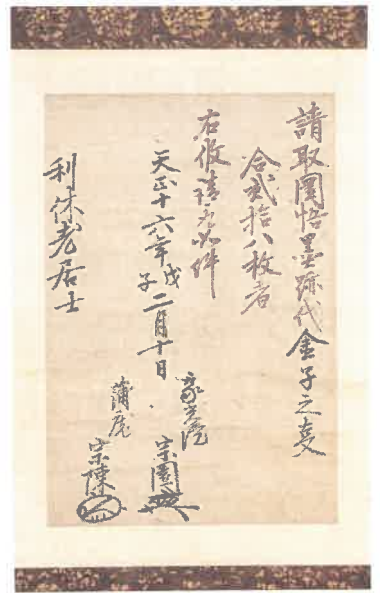 請取圜悟墨跡代金子之事
合貮拾八枚者
右 請 如件
天正十六年戊子二月十日
聚光院
宗園
蒲庵
宗陳
利休老居士